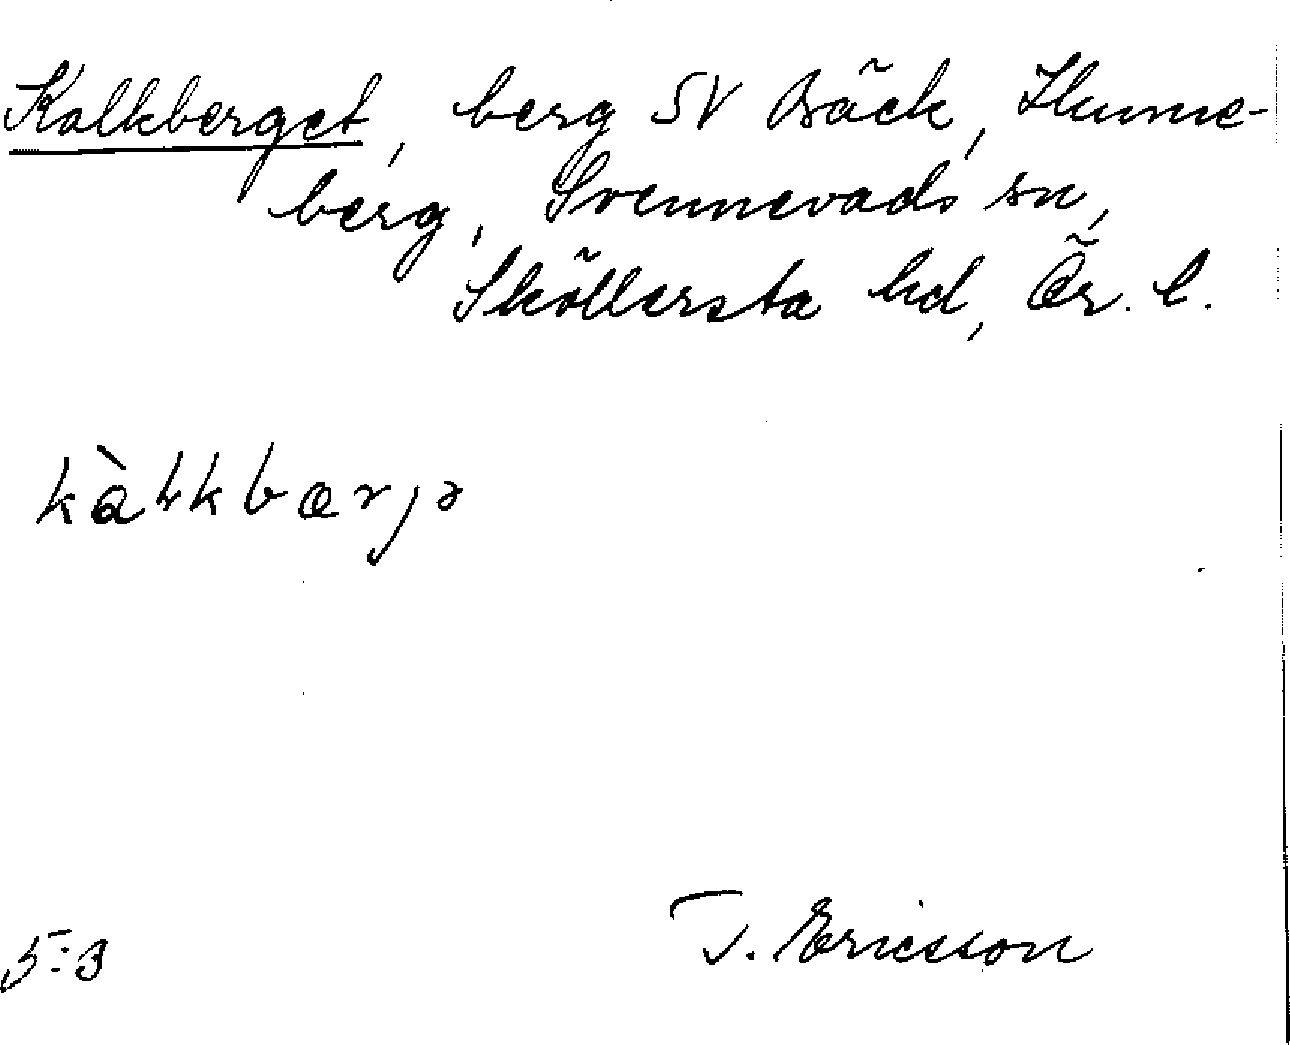 Kalkberget, berg SV Bäck, Hume-
berg, Svennevads sn,
Sköllersta hd, Ör. l.
kàɬkbærjə
5:3
T. Ericsson